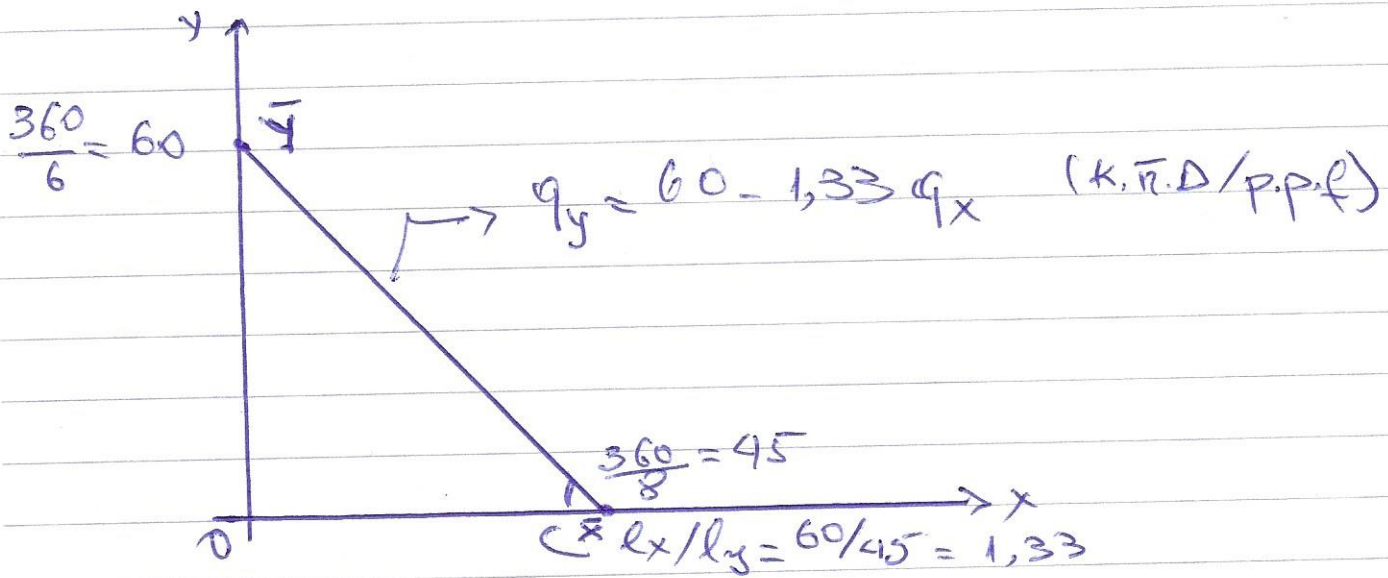 y
360/6 = 60
ȳ
q_y = 60 - 1,33 q_x (κ.π.Δ/p.p.f)
360/8 = 45
0
x̄
x
lx/ly = 60/45 = 1,33